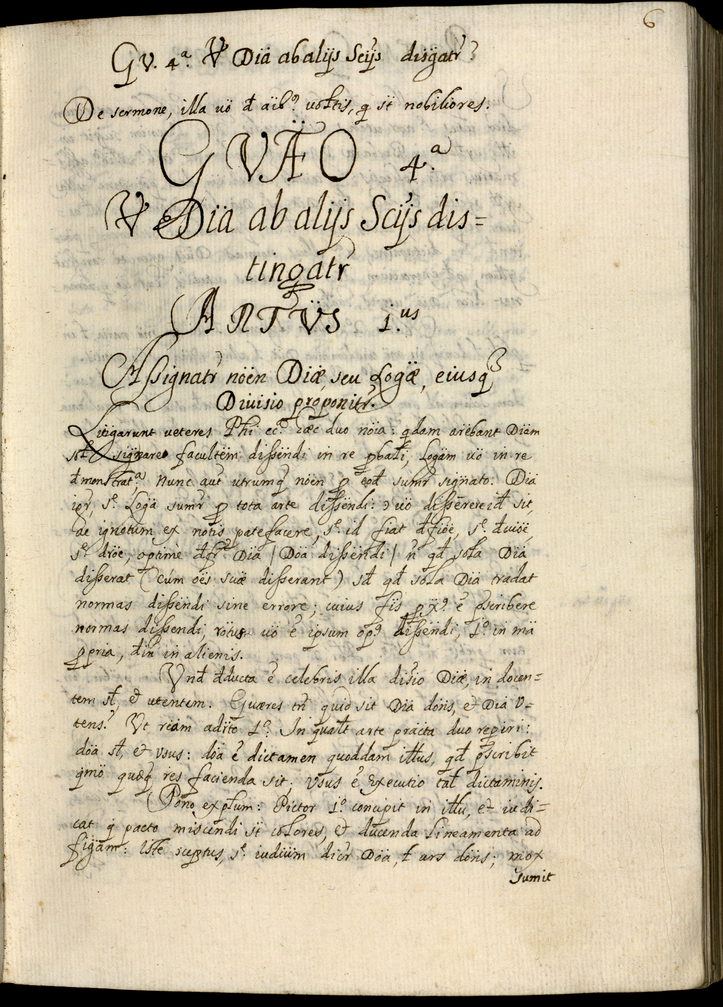 6
Qu. 4ª. Vt Dia ab alijs Scijs disgatr?
De sermone, illa uö đ äib9 uoltis, q st nobiliores.
QVÆO 4ª
Vt Dia ab alijs Scijs dis=
tingatr
ARTVS 1.us
Assignatr nöen Diæ, seu Logæ, eiusq3
Diuisio proponitr.
Litigarunt ueteres Phi ec. hæc duo nöia: qdam arebant Diam
facultem dissendi in re pbali, Logam uö in re
đmonstrata. Nunc aut utrumq nöen p eođ sumr signato. Dia
igr, sc Loga sumr p tota arte dissendi: uö disserere iđ sit,
ac ignotum ex notis patefacere, sc id fiat đfiöe, sc đuiöe,
optime Dia | Döa dissendi | n qđ sola Dia
disserat (cúm öes suæ disserant) sđ qđ sola Dia tradat
normas dissendi sine errore; cuius fis px9 e pscribere
normas dissendi, uö e ipsum op9 dissendi, 1º in mä
ppria, in alienis.
Vnđ đducta e celebris illa disio Diæ, in docen=
tem sl, et utentem. Quæres tn quid sit Dia dons, et Dia V=
tens? Vt rëam adito 1º. In qualt arte practa duo repiri:
döa sl, et Vsus: döa e dictamen quoddam illtus, qđ pscribit
qmö quæq res facienda sit; Vsus e Executio tal dictaminis.
Pono explum: Pictor 1º concipit in illu, et iudi=
cat q pacto miscendi st colores, et ducenda lineamenta ad
figam: Iste sceptus, sc iudium dicr Döa, l ars döns; mox
sumit